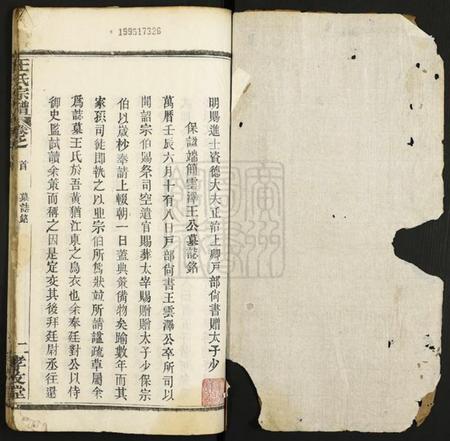 199517326
明賜進士資德大夫正治上卿戸部尙書贈太子少
保諡端簡雲澤王公墓誌銘
萬曆壬辰六月十有八日戸部尙書王雲澤公卒所司以
聞詔宗伯賜祭司空遣官賜葬太宰賜贈太子少保宗
伯以歲杪奉請上報朝一日蓋典策備物矣踰數年而其
家孫司徒即執之以亜宗伯所爲狀竝所請諡疏草屬余
爲誌墓王氏於吾黃猶江東之爲衣也余奉廷對公以侍
御史監試讀余策而稱之因是定交其後拜廷尉丞往還
王氏宗譜
卷之首
墓誌銘
一
孝友堂